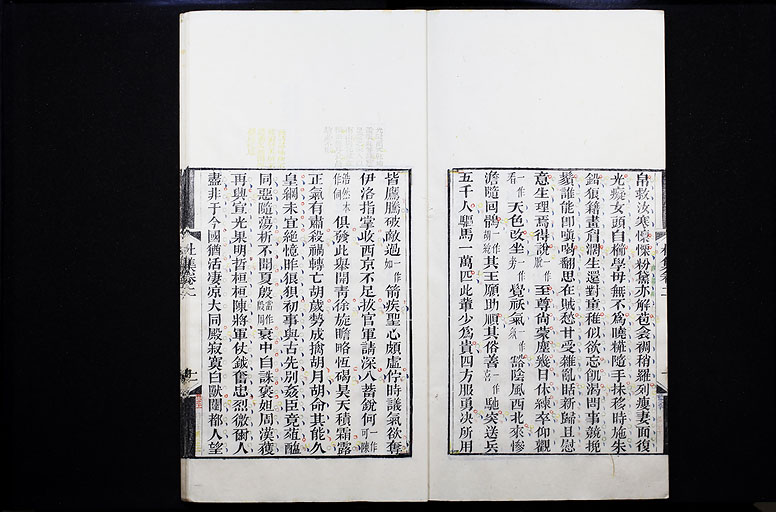 帛救汝寒懍慄粉黛亦解苞衾裯稍羅列瘦妻面復
光癡女頭自櫛學母無不為曉粧隨手抹移時施朱
鉛狼籍畫眉闊生還對童稚似欲忘飢渴問事競挽
鬚誰能即嗔喝翻思在賊愁甘受雜亂聒新歸且慰
意生理焉得說至尊尚蒙塵幾日休練卒仰觀
看一作天色改坐一作覺祅氣豁陰風西北來慘
澹隨回鶻其王願助順其俗善馳突送兵
五千人驅馬一萬匹此輩少為貴四方服勇決所用
皆鷹騰破敵過一作如箭疾聖心頗虛佇時議氣欲奪
伊洛指掌收西京不足拔官軍請深入蓄銳何一作可
俱發此舉開青徐旋瞻略恆碣昊天積霜露
正氣有肅殺禍轉亡胡歲勢成擒胡月胡命其能久
皇綱未宜絕憶昨狼狽初事與古先別姦臣竟葅醢
同惡隨蕩析不聞夏殷衰中自誅褒妲周漢獲
再興宣光果明哲桓桓陳將軍仗鉞奮忠烈微爾人
盡非于今國猶活淒涼大同殿寂寞白獸闥都人望